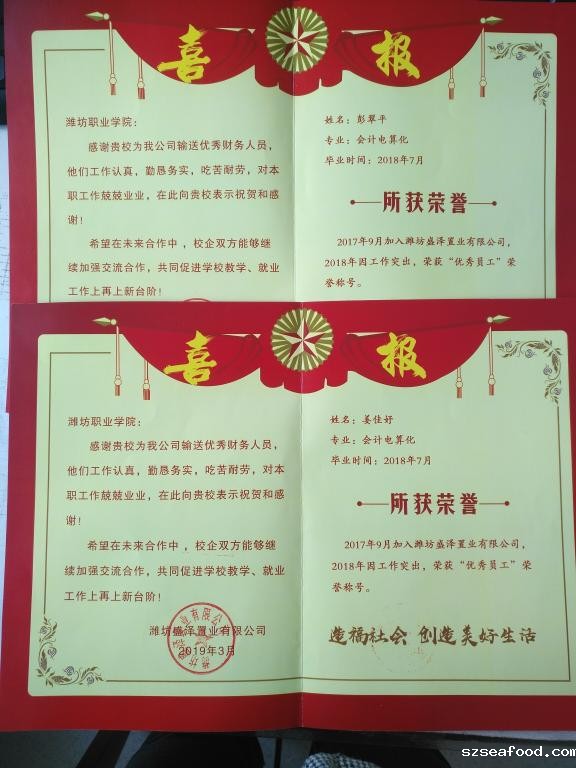 喜报
潍坊职业学院：
感谢贵校为我公司输送优秀财务人员，
他们工作认真，勤恳务实，吃苦耐劳，对本
职工作兢兢业业，在此向贵校表示祝贺和感
谢！
希望在未来合作中，校企双方能够继
续加强交流合作，共同促进学校教学、就业
工作上再上新台阶！
姓名：彭翠平
专业：会计电算化
毕业时间：2018年7月
所获荣誉
2017年9月加入潍坊盛泽置业有限公司，
2018年因工作突出，荣获“优秀员工”荣
誉称号。
喜报
潍坊职业学院：
感谢贵校为我公司输送优秀财务人员，
他们工作认真，勤恳务实，吃苦耐劳，对本
职工作兢兢业业，在此向贵校表示祝贺和感
谢！
希望在未来合作中，校企双方能够继
续加强交流合作，共同促进学校教学、就业
工作上再上新台阶！
潍坊盛泽置业有限公司
2019年3月
姓名：姜佳妤
专业：会计电算化
毕业时间：2018年7月
所获荣誉
2017年9月加入潍坊盛泽置业有限公司，
2018年因工作突出，荣获“优秀员工”荣
誉称号。
造福社会 创造美好生活
www.szseafood.com